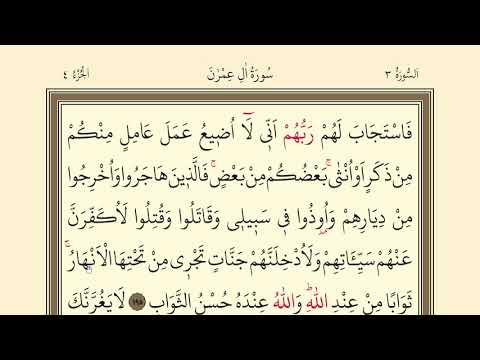 اَلسُّورَةُ ٣ سُورَةُ اٰلِ عِمْرٰنَ اَلْجُزْءُ ٤
فَاسْتَجَابَ لَهُمْ رَبُّهُمْ اَنّ۪ي لَٓا اُض۪يعُ عَمَلَ عَامِلٍ مِنْكُمْ
مِنْ ذَكَرٍ اَوْ اُنْثٰىۚ بَعْضُكُمْ مِنْ بَعْضٍۚ فَالَّذ۪ينَ هَاجَرُوا وَاُخْرِجُوا
مِنْ دِيَارِهِمْ وَاُو۫ذُوا ف۪ي سَب۪يل۪ي وَقَاتَلُوا وَقُتِلُوا لَاُكَفِّرَنَّ
عَنْهُمْ سَيِّـَٔاتِهِمْ وَلَاُدْخِلَنَّهُمْ جَنَّاتٍ تَجْر۪ي مِنْ تَحْتِهَا الْاَنْهَارُۚ
ثَوَابًا مِنْ عِنْدِ اللّٰهِۜ وَاللّٰهُ عِنْدَهُ حُسْنُ الثَّوَابِ ١٩٥ لَا يَغُرَّنَّكَ